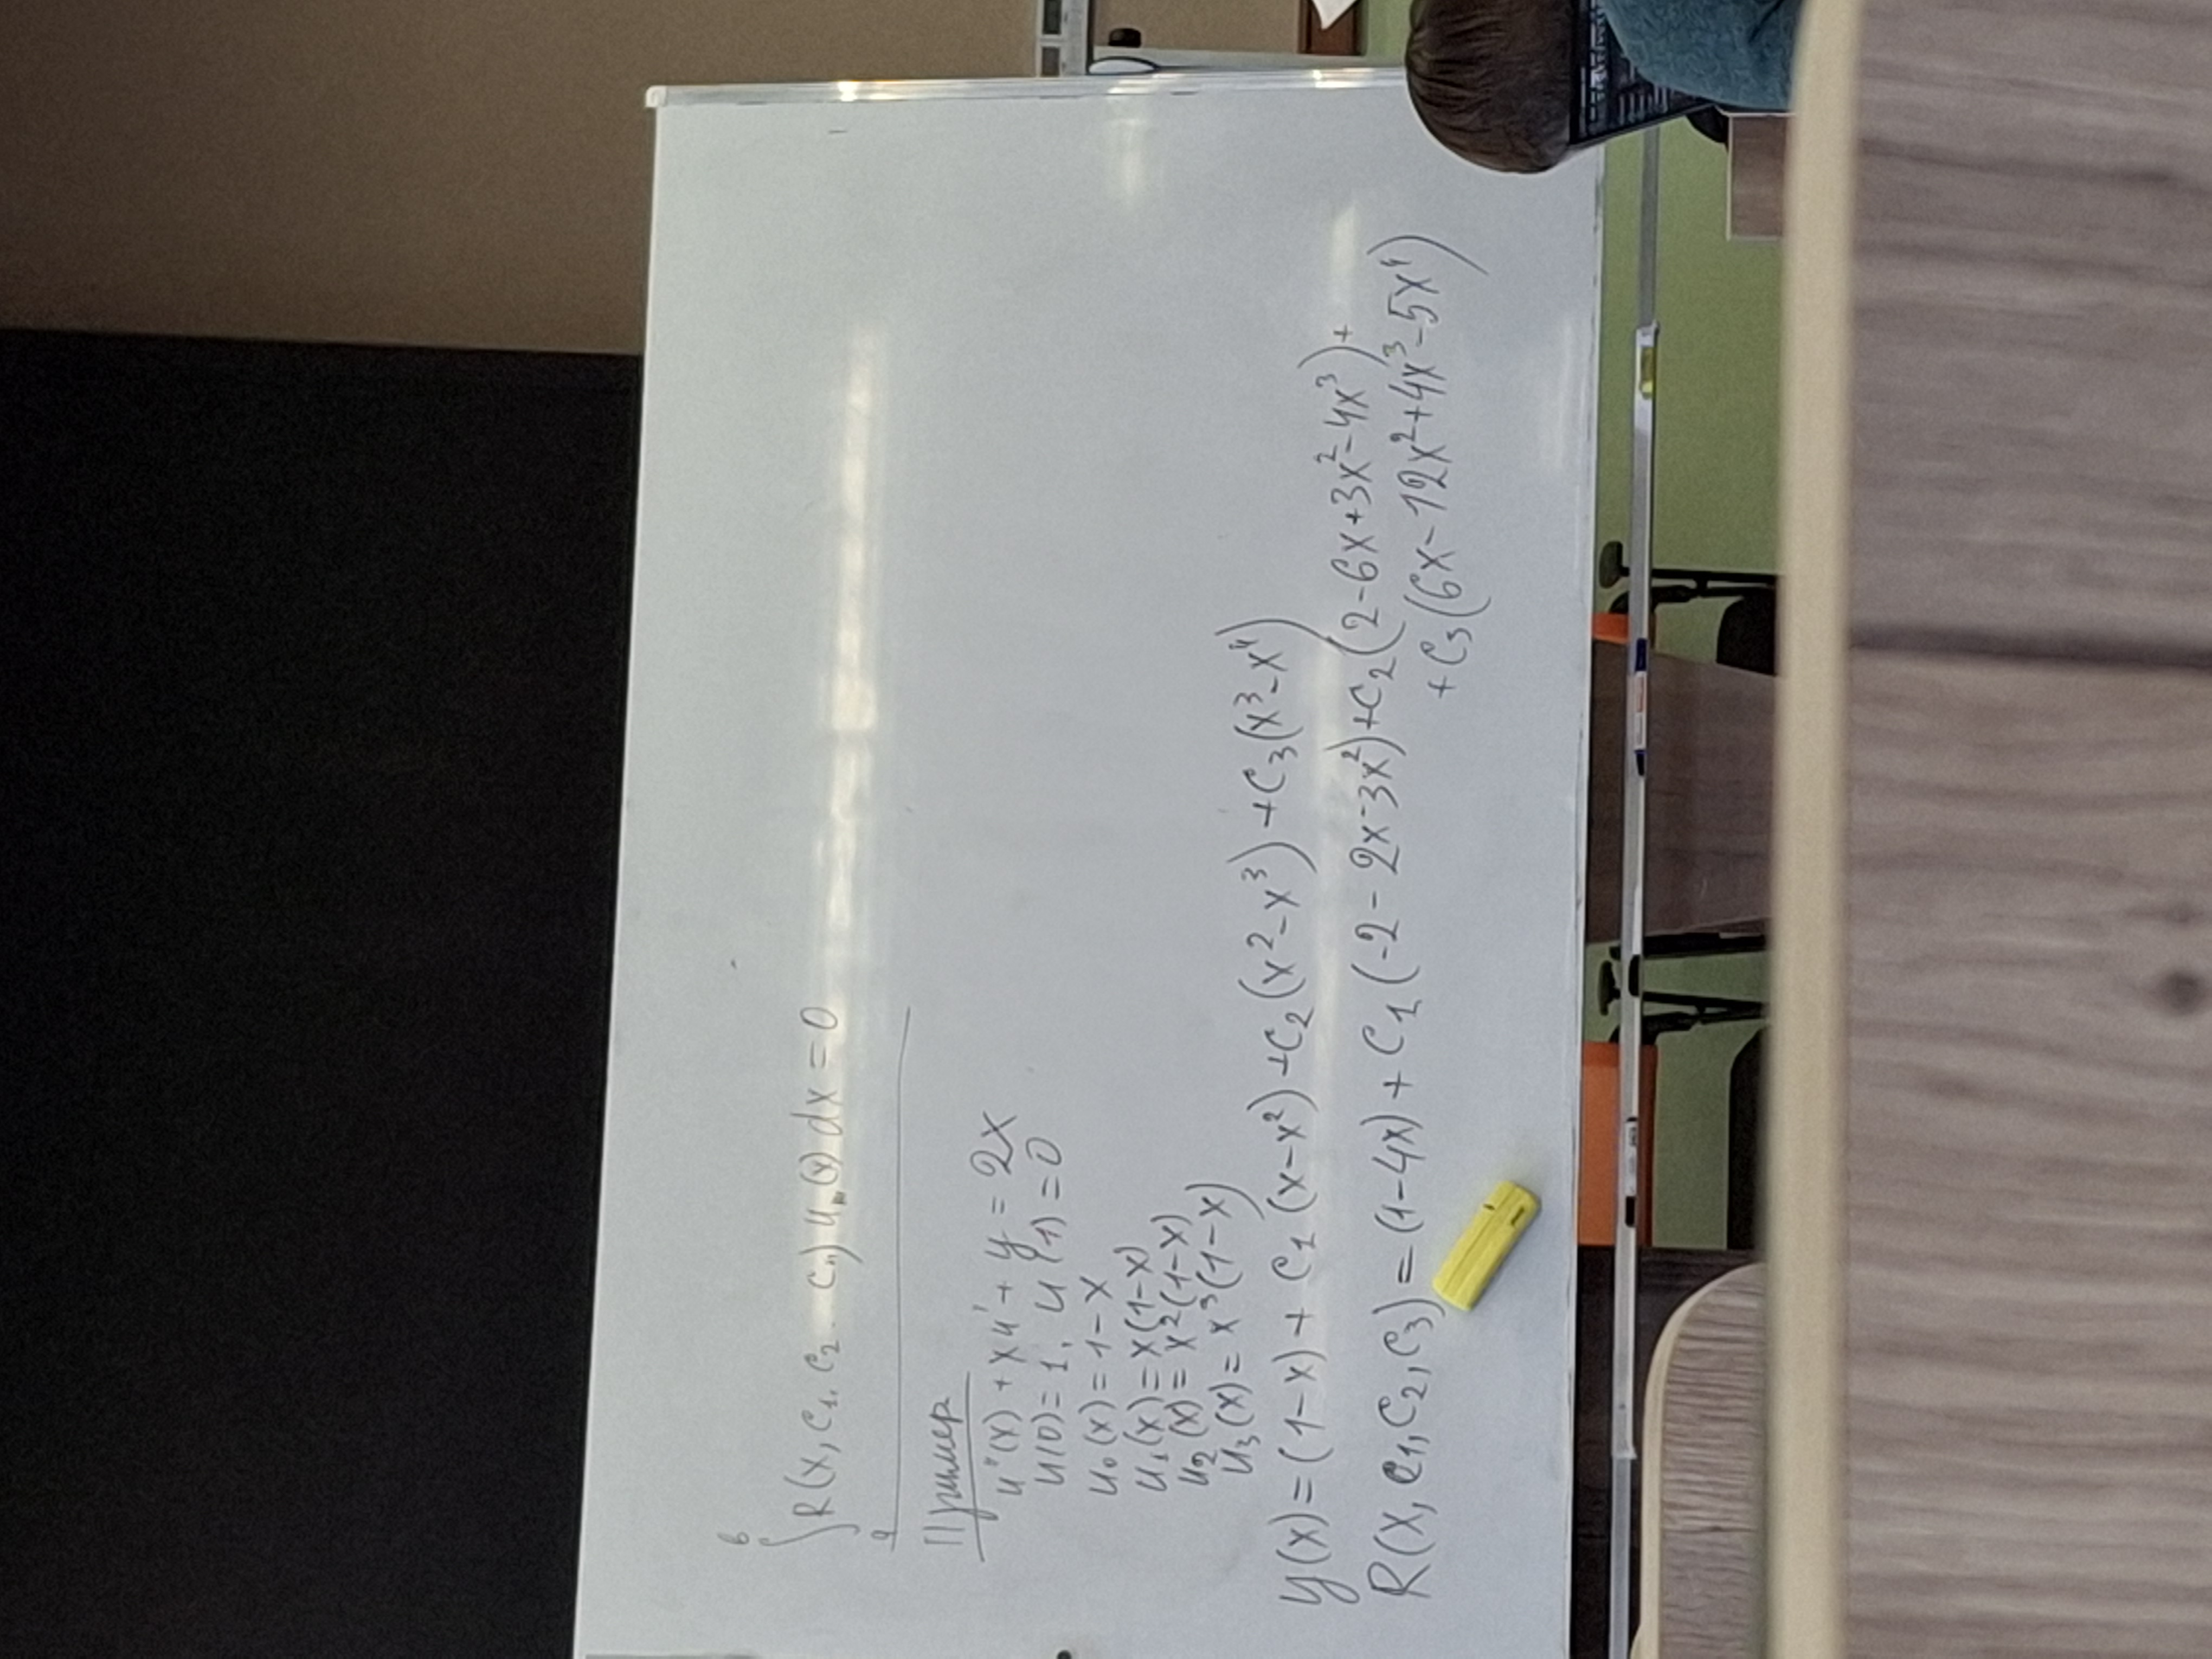 b
∫ R(x, c₁, c₂ ... cₙ) uₘ(x) dx = 0
a
Пример
u''(x) + xu' + y = 2x
u(0) = 1, u(1) = 0
u₀(x) = 1-x
u₁(x) = x(1-x)
u₂(x) = x²(1-x)
u₃(x) = x³(1-x)
y(x) = (1-x) + C₁(x-x²) + C₂(x²-x³) + C₃(x³-x⁴)
R(x, c₁, c₂, c₃) = (1-4x) + C₁(-2-2x-3x²) + C₂(2-6x+3x²-4x³) +
+ C₃(6x-12x²+4x³-5x⁴)